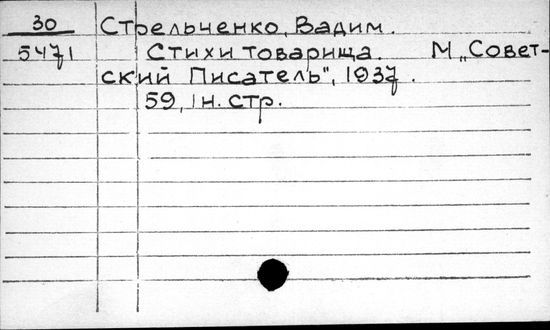 30 Стрельченко, Вадим.
5471 Стихи товарища. М „Совет-
ский Писатель", 1937.
59, 1 н. стр.